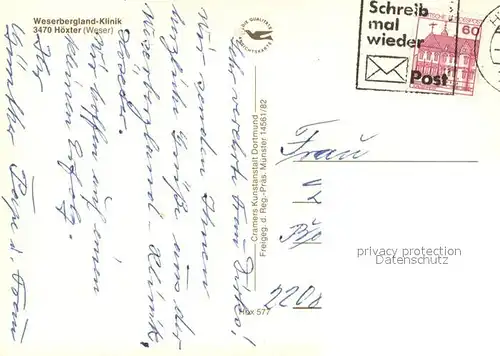 Weserbergland-Klinik
3470 Höxter (Weser)
DIE QUALITÄTS
ANSICHTSKARTE
Schreib
mal
wieder
Post
DEUTSCHE BUNDESPOST
60
Sehr verehrte Frau
Wir senden Ihnen
herzliche Grüße aus der
Weserbergland-Klinik,
Höxter.
Wir hoffen auf einen
kleinen Erfolg.
Ihr
Günther
Cramers Kunstanstalt Dortmund
Freigeg. d. Reg.-Präs. Münster 14561/82
Höx 577
Frau
privacy protection
Datenschutz